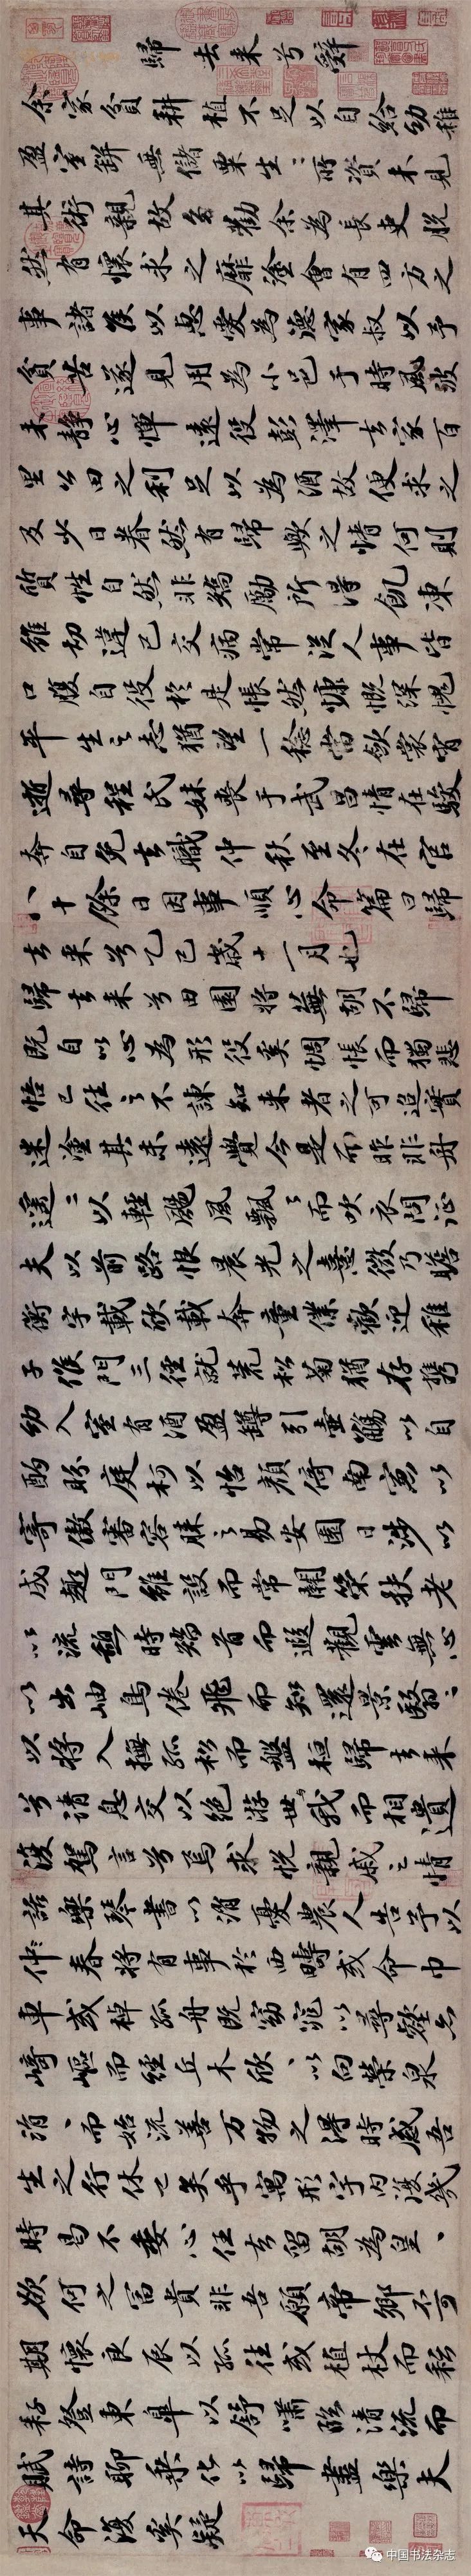 歸去来兮辭
余家貧耕植不足以自給幼稚
盈室缾無儲粟生〻所資未見
其術親故多勸余為長吏脫
然有懷求之靡塗會有四方之
事諸侯以惠愛為德家叔以予
貧苦遂見用為小邑于時風波
未靜心憚遠役彭澤去家百
里公田之利足以為酒故便求之
及少日眷然有歸歟之情何則
質性自然非矯勵所得飢凍
雖切違己交病常從人事皆
口腹自役於是悵然慷慨深愧
平生之志猶望一稔當斂裳宵
逝尋程氏妹喪于武昌情在駿
奔自免去職仲秋至冬在官
八十餘日因事順心命篇曰歸
去来兮乙巳歲十一月也
歸去来兮田園将蕪胡不歸
既自以心為形役奚惆悵而獨悲
悟已往之不諫知来者之可追實
迷塗其未遠覺今是而昨非舟
遥〻以輕颺風飄〻而吹衣問征
夫以前路恨晨光之熹微乃瞻
衡宇載欣載奔童僕歡迎稚
子候門三徑就荒松菊猶存携
幼入室有酒盈罇引壺觴以自
酌眄庭柯以怡顏倚南窓以
寄傲審容膝之易安園日涉以
成趣門雖設而常關策扶老
以流憩時矯首而遐觀雲無心
以出岫鳥倦飛而知還景翳〻
以将入撫孤松而盤桓歸去来
兮請息交以絶游世我而相遺
復駕言兮焉求悅親戚之情
話樂琴書以消憂農人告予以
仲春将有事於西疇或命巾
車或棹孤舟既窈窕以尋壑亦
崎嶇而經丘木欣〻以向榮泉
涓〻而始流善万物之得時感吾
生之行休已矣乎寓形宇内復幾
時曷不委心任去留胡為皇〻
欲何之富貴非吾願帝鄉不可
期懷良辰以孤往或植杖而耘
耔登東皐以舒嘯臨清流而
賦詩聊乘化以歸盡樂夫
天命復奚疑
中国书法杂志